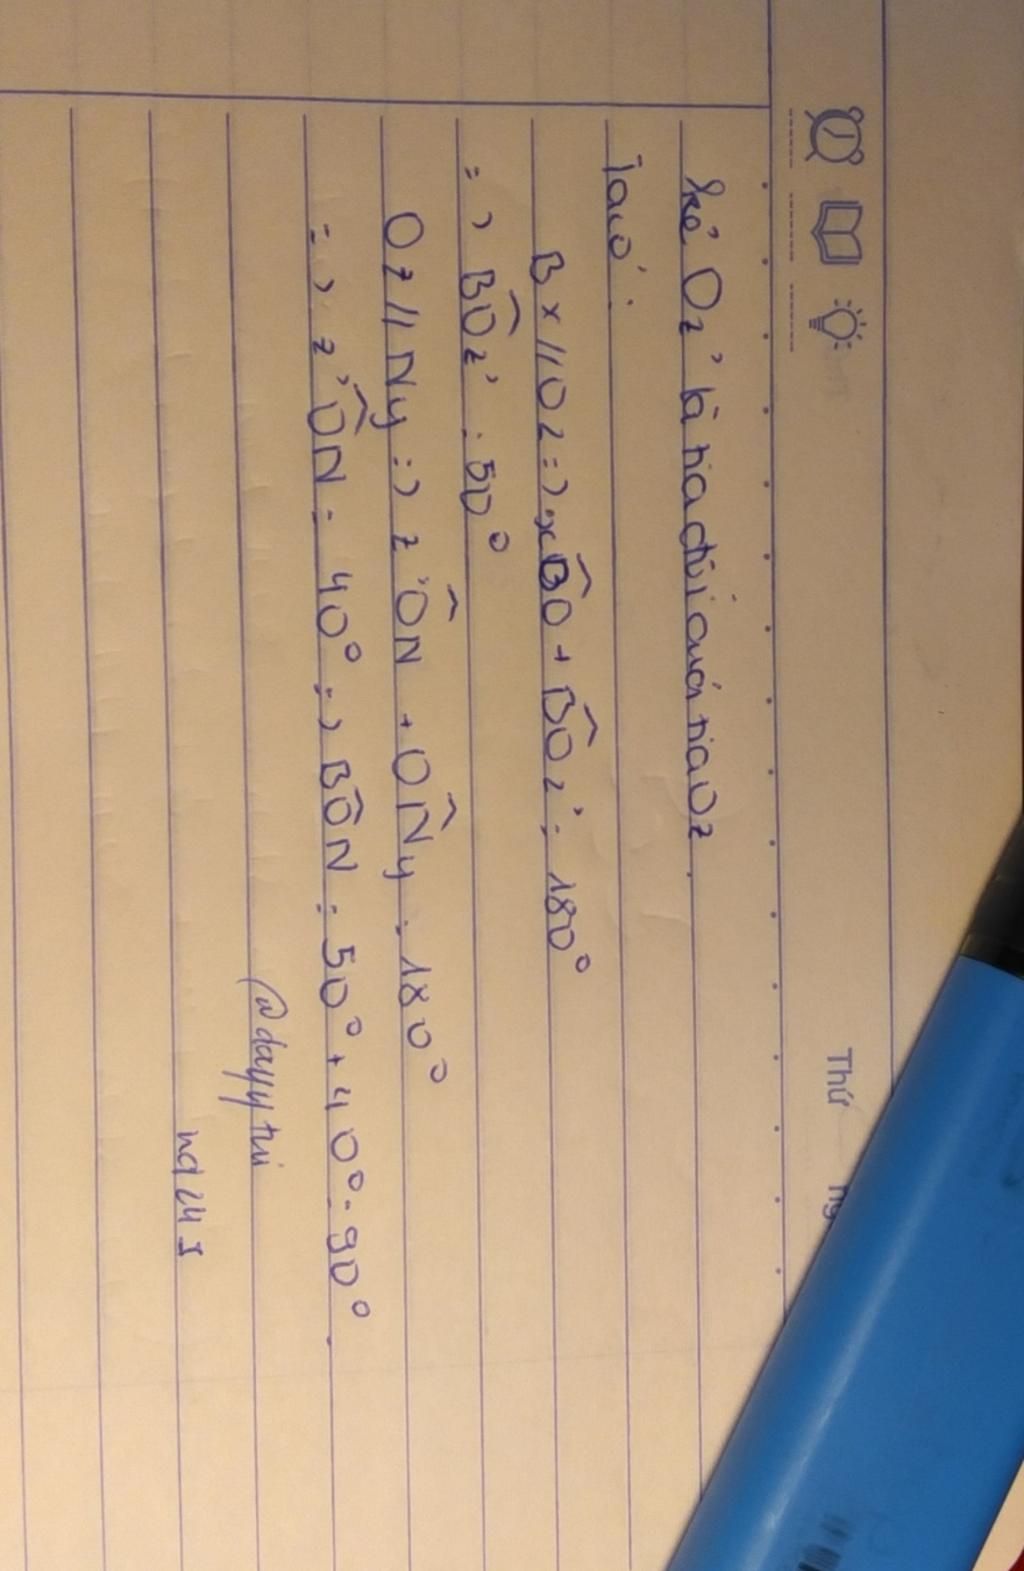 Thứ ng
kẻ Oz' là tia đối của tia Oz.
Ta có:
Bx // Oz => xBÔ + BÔz' = 180°
=> BÔz' = 50°
Oz // Ny => z'ÔN + ON̂y = 180°
=> z'ÔN = 40° => BÔN = 50° + 40° = 90°.
@dayy tui